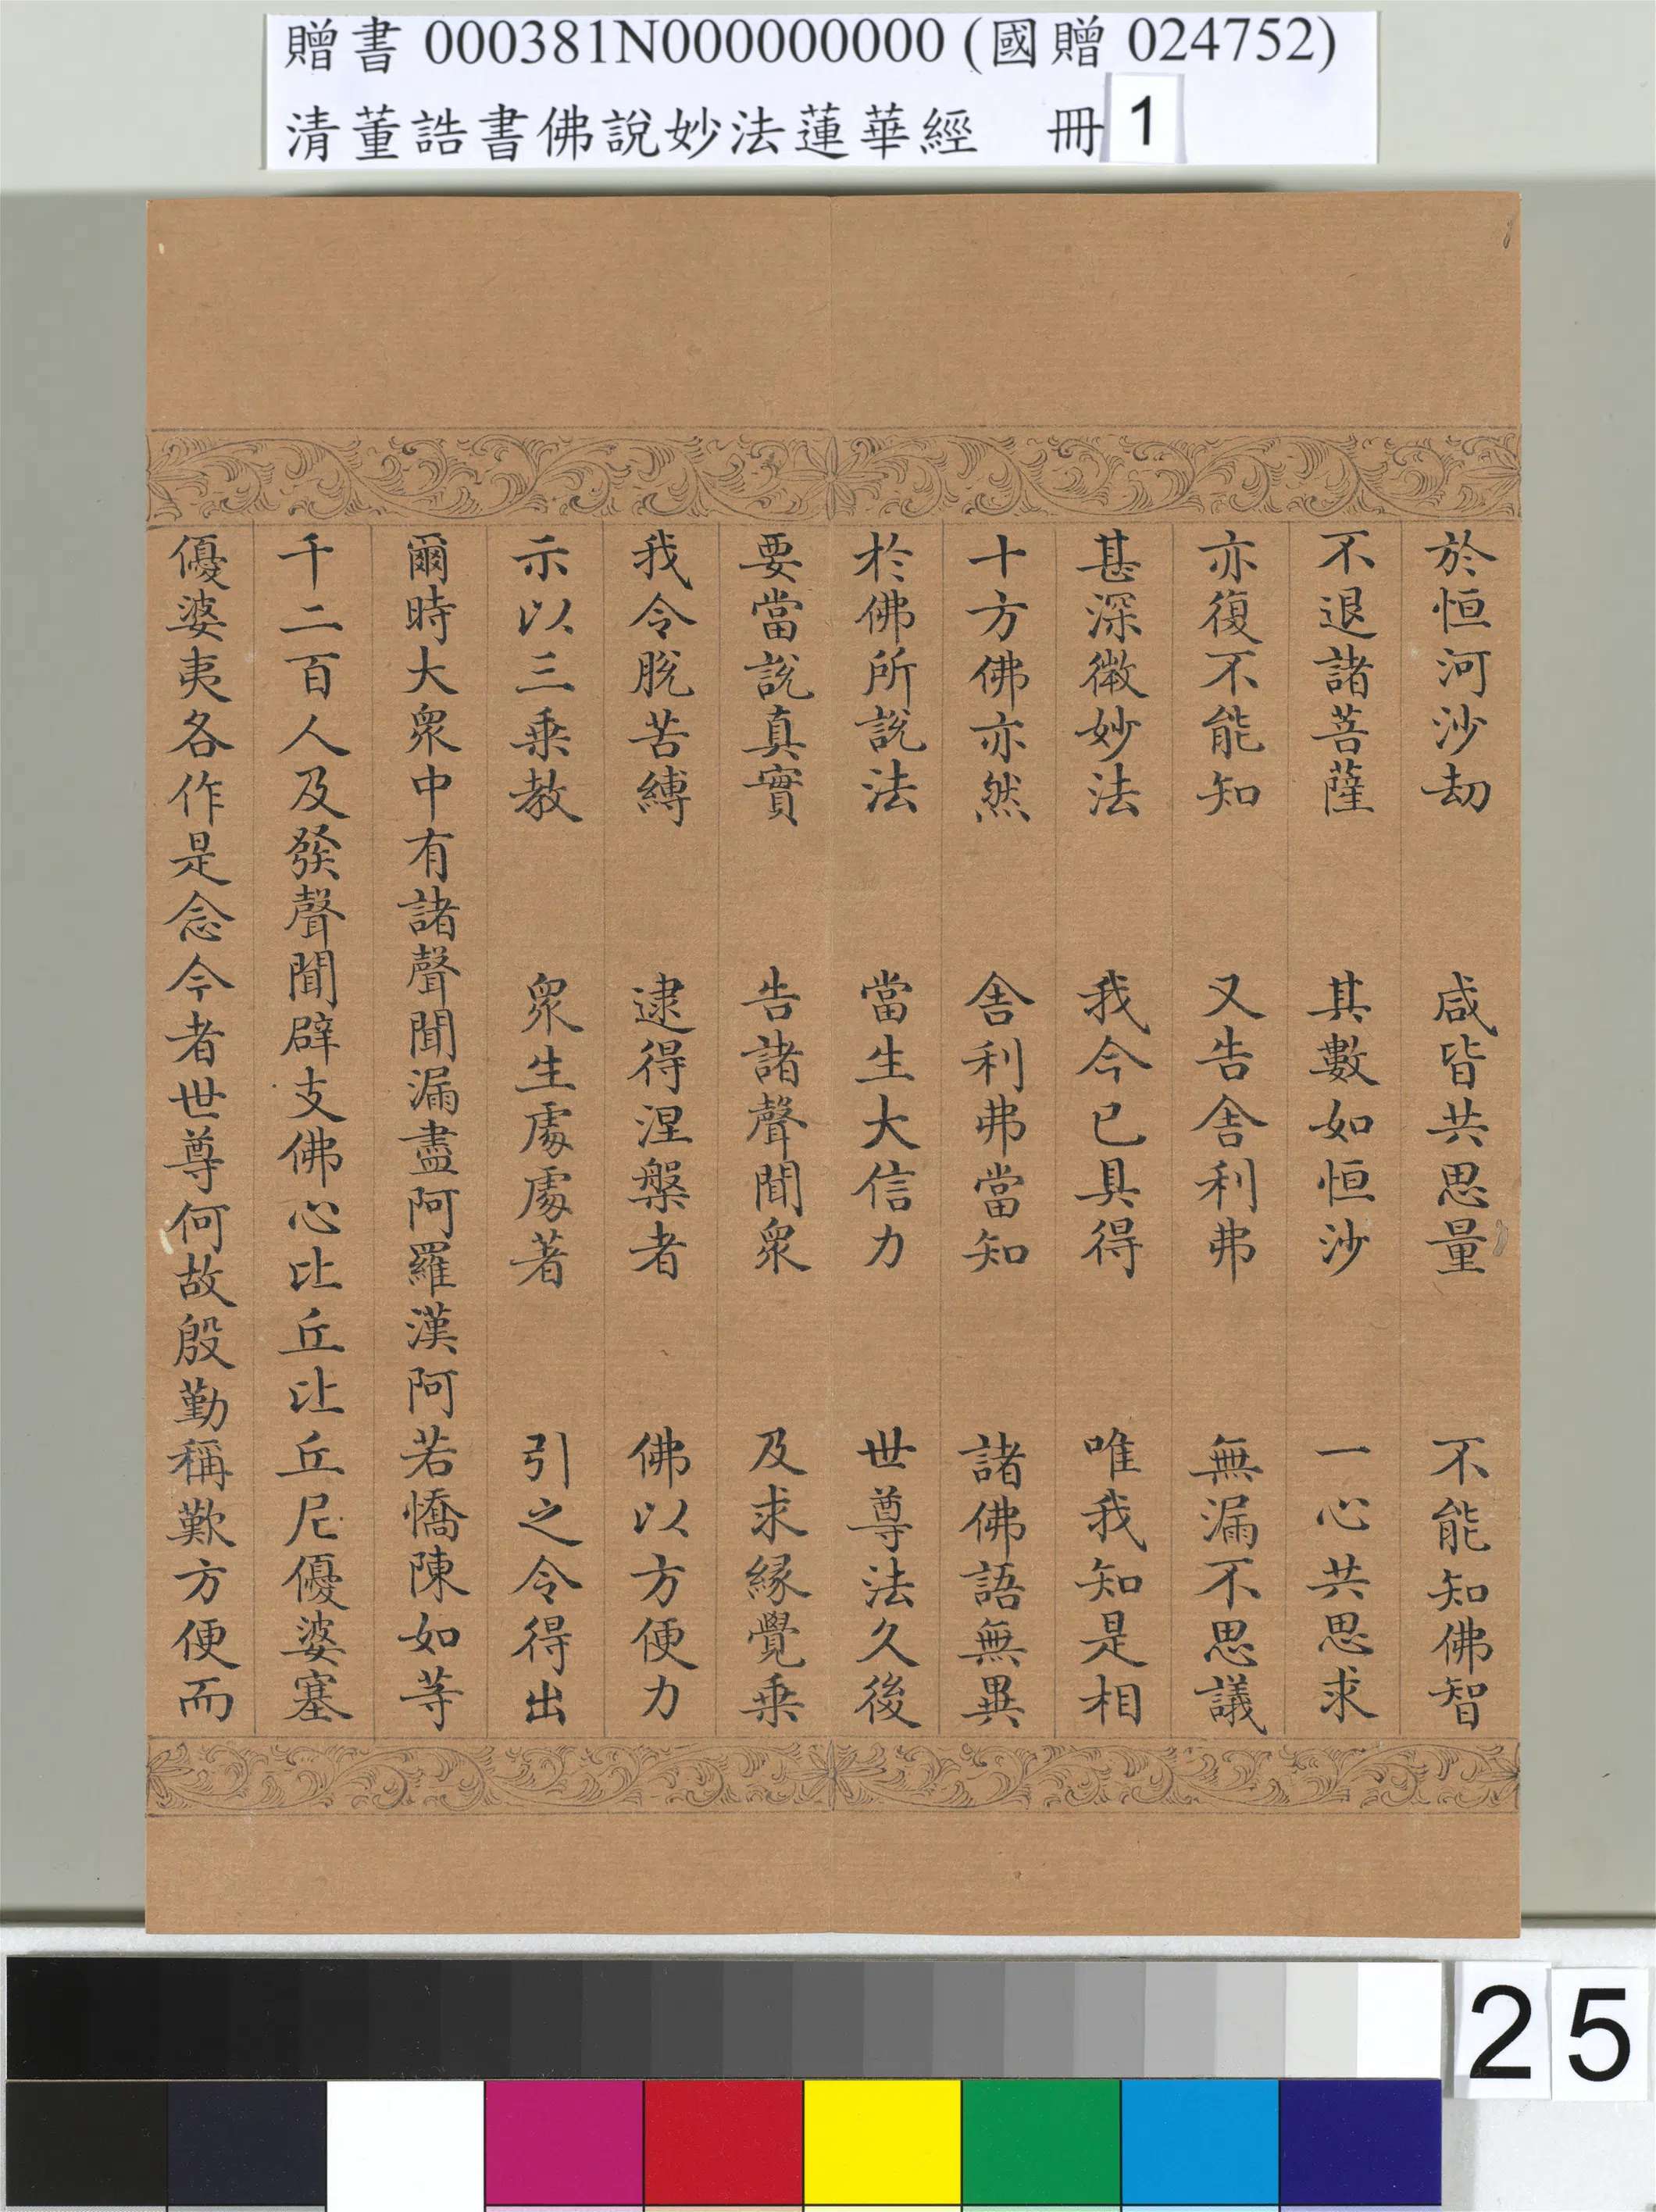 贈書 000381N000000000 (國贈 024752)
清董誥書佛說妙法蓮華經 冊 1
於恒河沙劫 咸皆共思量 不能知佛智
不退諸菩薩 其數如恒沙 一心共思求
亦復不能知 又告舍利弗 無漏不思議
甚深微妙法 我今已具得 唯我知是相
十方佛亦然 舍利弗當知 諸佛語無異
於佛所說法 當生大信力 世尊法久後
要當說真實 告諸聲聞眾 及求緣覺乘
我令脫苦縛 逮得涅槃者 佛以方便力
示以三乘教 眾生處處著 引之令得出
爾時大眾中有諸聲聞漏盡阿羅漢阿若憍陳如等
千二百人及發聲聞辟支佛心比丘比丘尼優婆塞
優婆夷各作是念今者世尊何故殷勤稱歎方便而
25